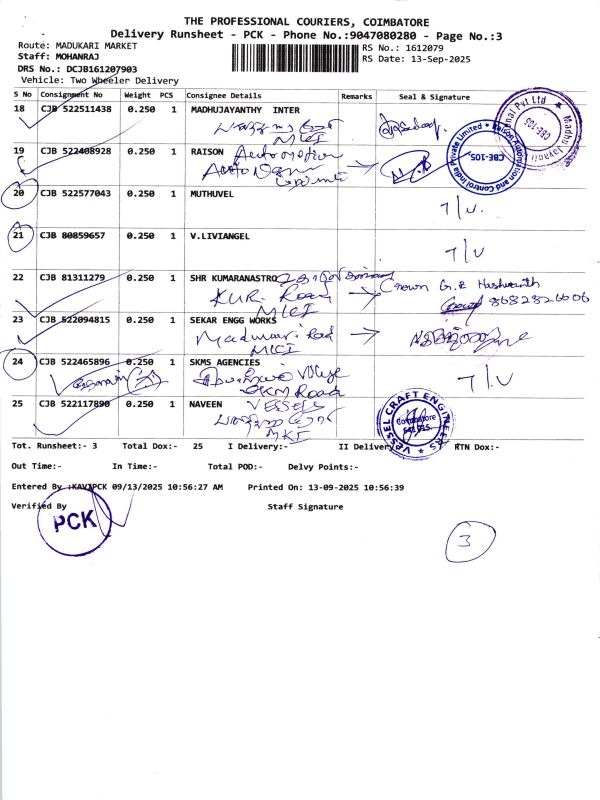 THE PROFESSIONAL COURIERS, COIMBATORE
Delivery Runsheet - PCK - Phone No.:9047080280 - Page No.:3
Route: MADUKARI MARKET
RS No.: 1612079
Staff: MOHANRAJ
RS Date: 13-Sep-2025
DRS No.: DCJB161207903
Vehicle: Two Wheeler Delivery
S No Consignment No Weight PCS Consignee Details Remarks Seal & Signature
18 CJB 522511438 0.250 1 MADHUJAYANTHY INTER
MKI
19 CJB 522408928 0.250 1 RAISON Automation
20 CJB 522577043 0.250 1 MUTHUVEL
7/U.
21 CJB 80859657 0.250 1 V.LIVIANGEL
7/U
22 CJB 81312279 0.250 1 SHR KUMARANASTRO
KUR. Road Crown G.R Hashvanth
MKI 8682826606
23 CJB 522094815 0.250 1 SEKAR ENGG WORKS
Madukkari Road
MKI
24 CJB 522465896 0.250 1 SKMS AGENCIES
7/U
SKM Road
25 CJB 522117890 0.250 1 NAVEEN VESSEL
MKI
VESSEL CRAFT ENGINEERS
Coimbatore
Raison Automation and Control India Private Limited
CBE-105.
Madhu Jayanti
nal Pvt Ltd
CBE-105
Tot. Runsheet:- 3 Total Dox:- 25 I Delivery:- II Delivery RTN Dox:-
Out Time:- In Time:- Total POD:- Delvy Points:-
Entered By :KAVIPCK 09/13/2025 10:56:27 AM Printed On: 13-09-2025 10:56:39
Verified By Staff Signature
PCK
3